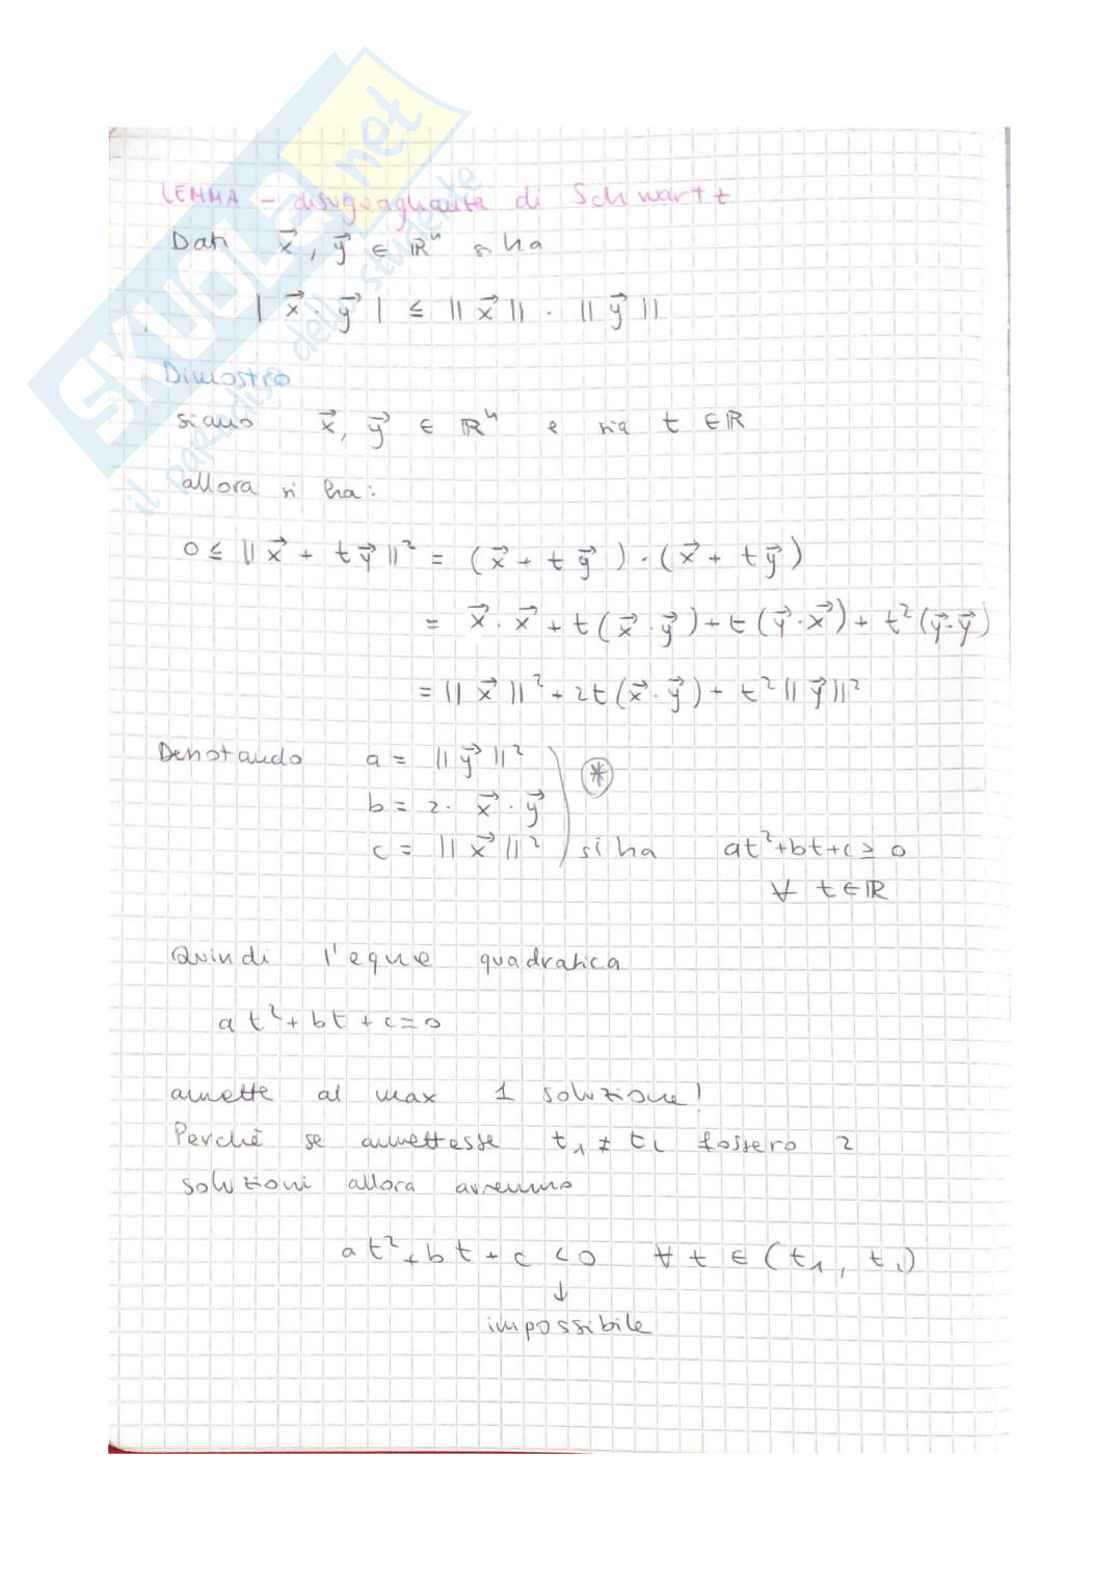 SKUOLA.net
il paradiso dello studente
LEMMA - disuguaglianza di Schwartz
Dati x⃗, y⃗ ∈ ℝⁿ si ha
| x⃗ · y⃗ | ≤ || x⃗ || · || y⃗ ||
Dimostro
siano x⃗, y⃗ ∈ ℝⁿ e sia t ∈ ℝ
allora si ha:
0 ≤ || x⃗ + t y⃗ ||² = (x⃗ + t y⃗) · (x⃗ + t y⃗)
= x⃗ · x⃗ + t (x⃗ · y⃗) + t (y⃗ · x⃗) + t² (y⃗ · y⃗)
= || x⃗ ||² + 2t (x⃗ · y⃗) + t² || y⃗ ||²
Denotando a = || y⃗ ||²
b = 2 · x⃗ · y⃗ ⊛
c = || x⃗ ||² si ha at² + bt + c ≥ 0
∀ t ∈ ℝ
Quindi l'eq.ne quadratica
at² + bt + c = 0
amette al max 1 soluzione!
Perchè se amettesse t₁ ≠ t₂ fossero 2
soluzioni allora avremmo
at² + bt + c < 0 ∀ t ∈ (t₁, t₂)
↓
impossibile